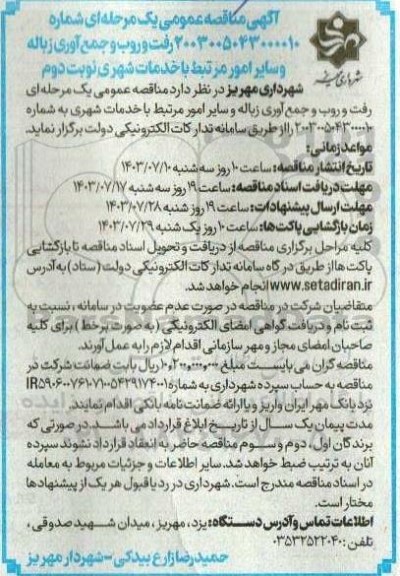 آگهی مناقصه عمومی یک مرحله‌ای شماره
۲۰۰۳۰۰۵۰۴۳۰۰۰۰۱۰ رفت و روب و جمع آوری زباله
و سایر امور مرتبط با خدمات شهری نوبت دوم
شهرداری مهریز
شهرداری مهریز در نظر دارد مناقصه عمومی یک مرحله‌ای
رفت و روب و جمع آوری زباله و سایر امور مرتبط با خدمات شهری به شماره
۲۰۰۳۰۰۵۰۴۳۰۰۰۰۱۰ را از طریق سامانه تدارکات الکترونیکی دولت برگزار نماید.
مواعد زمانی:
تاریخ انتشار مناقصه: ساعت ۱۰ روز سه شنبه ۱۴۰۳/۰۷/۱۰
مهلت دریافت اسناد مناقصه: ساعت ۱۹ روز سه شنبه ۱۴۰۳/۰۷/۱۷
مهلت ارسال پیشنهادات: ساعت ۱۹ روز شنبه ۱۴۰۳/۰۷/۲۸
زمان بازگشایی پاکت‌ها: ساعت ۱۰ روز یک شنبه ۱۴۰۳/۰۷/۲۹
کلیه مراحل برگزاری مناقصه از دریافت و تحویل اسناد مناقصه تا بازگشایی
پاکت ها از طریق درگاه سامانه تدارکات الکترونیکی دولت (ستاد) به آدرس
www.setadiran.ir انجام خواهد شد.
متقاضیان شرکت در مناقصه در صورت عدم عضویت در سامانه، نسبت به
ثبت نام و دریافت گواهی امضای الکترونیکی (به صورت برخط) برای کلیه
صاحبان امضای مجاز و مهر سازمانی اقدام لازم را به عمل آورند.
مناقصه گران می بایست مبلغ ۱۰,۲۰۰,۰۰۰,۰۰۰ ریال بابت ضمانت شرکت در
مناقصه به حساب سپرده شهرداری به شماره IR۵۹۰۶۰۰۷۶۱۰۷۱۰۰۵۴۲۹۱۷۴۰۰۱
نزد بانک مهر ایران واریز و یا ارائه ضمانت نامه بانکی اقدام نمایند.
مدت پیمان یک سال از تاریخ ابلاغ قرارداد می باشد. در صورتی که
برندگان اول، دوم و سوم مناقصه حاضر به انعقاد قرارداد نشوند سپرده
آنان به ترتیب ضبط خواهد شد. سایر اطلاعات و جزئیات مربوط به معامله
در اسناد مناقصه مندرج است. شهرداری در رد یا قبول هر یک از پیشنهادها
مختار است.
اطلاعات تماس و آدرس دستگاه: یزد، مهریز، میدان شهید صدوقی،
تلفن: ۰۳۵۳۲۵۲۲۰۴۰
حمیدرضا زارع بیدکی - شهردار مهریز